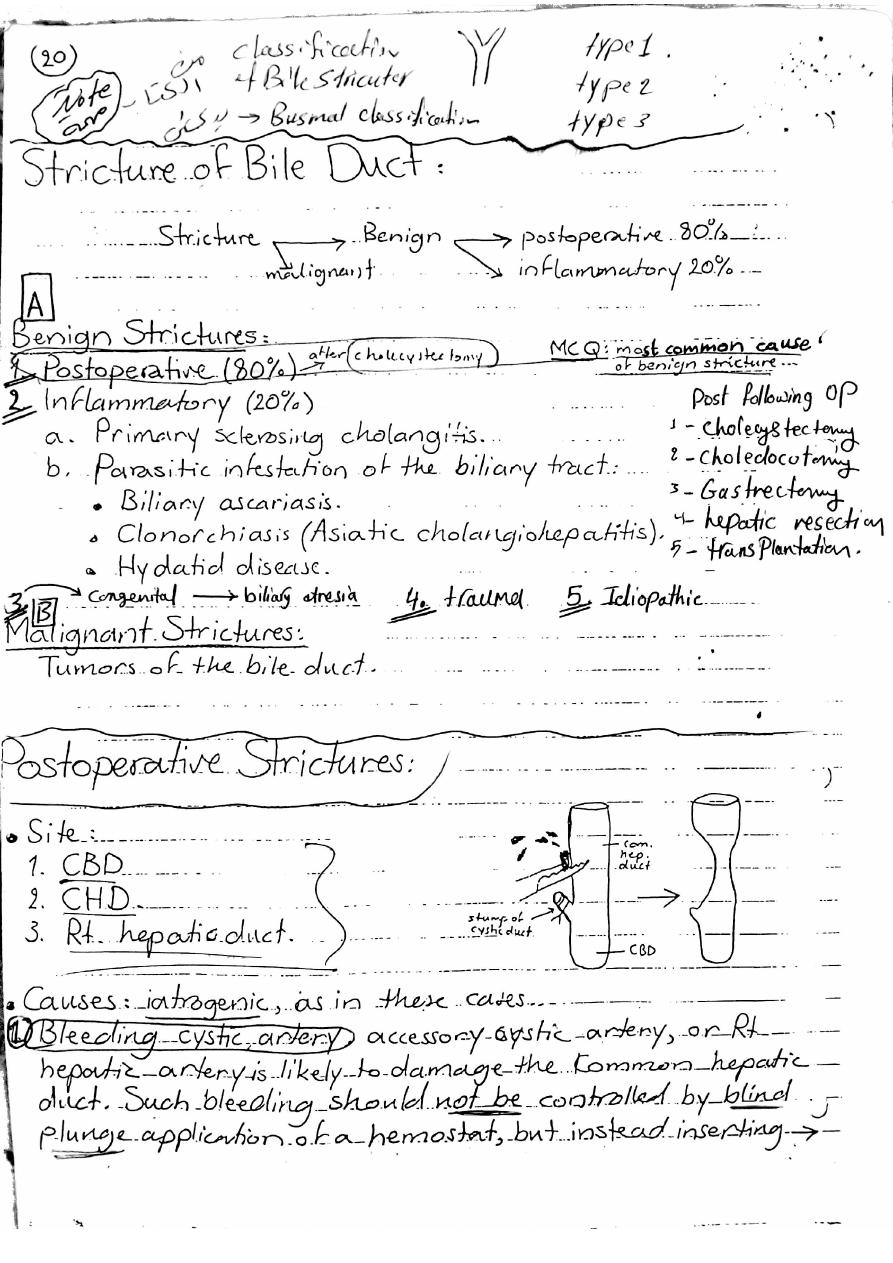 (20)
من classification type 1.
of Bile Stricuter type 2
Note → Busmal classification type 3
Stricture of Bile Duct:
Stricture → Benign → postoperative 80%
malignant inflammatory 20%
A
Benign Strictures:
1. Postoperative (80%) after cholecystectomy MCQ: most common cause
of benign stricture
2. Inflammatory (20%) Post following OP
a. Primary sclerosing cholangitis. 1 - cholecystectomy
b. Parasitic infestation of the biliary tract: 2 - choledocotomiy
• Biliary ascariasis. 3 - Gastrectomy
• Clonorchiasis (Asiatic cholangiohepatitis). 4 - hepatic resection
• Hydatid disease. 5 - transPlantation.
3. congenital → biliary atresia 4. trauma 5. Idiopathic
B
Malignant Strictures:
Tumors of the bile duct.
Postoperative Strictures:
• Site:
1. CBD
2. CHD
3. Rt hepatic duct.
com.
hep.
duct
stump of
cystic duct
CBD
• Causes: iatrogenic, as in these cases
1) Bleeding cystic artery, accessory cystic artery, or Rt
hepatic artery is likely to damage the common hepatic
duct. Such bleeding should not be controlled by blind
plunge application of a hemostat, but instead inserting →